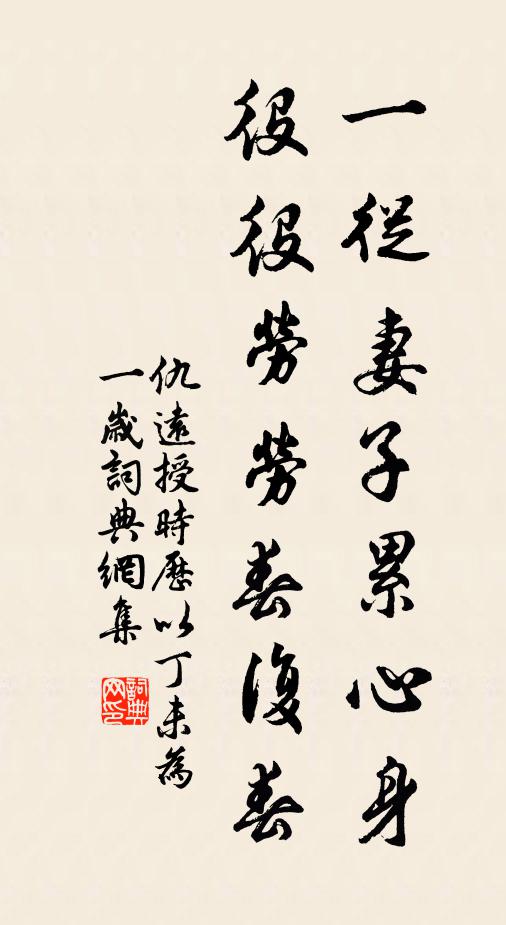 一從妻子累心身
役役勞勞春復春
仇遠授時歷以丁未為
一歲詞典網集
詞典
网印